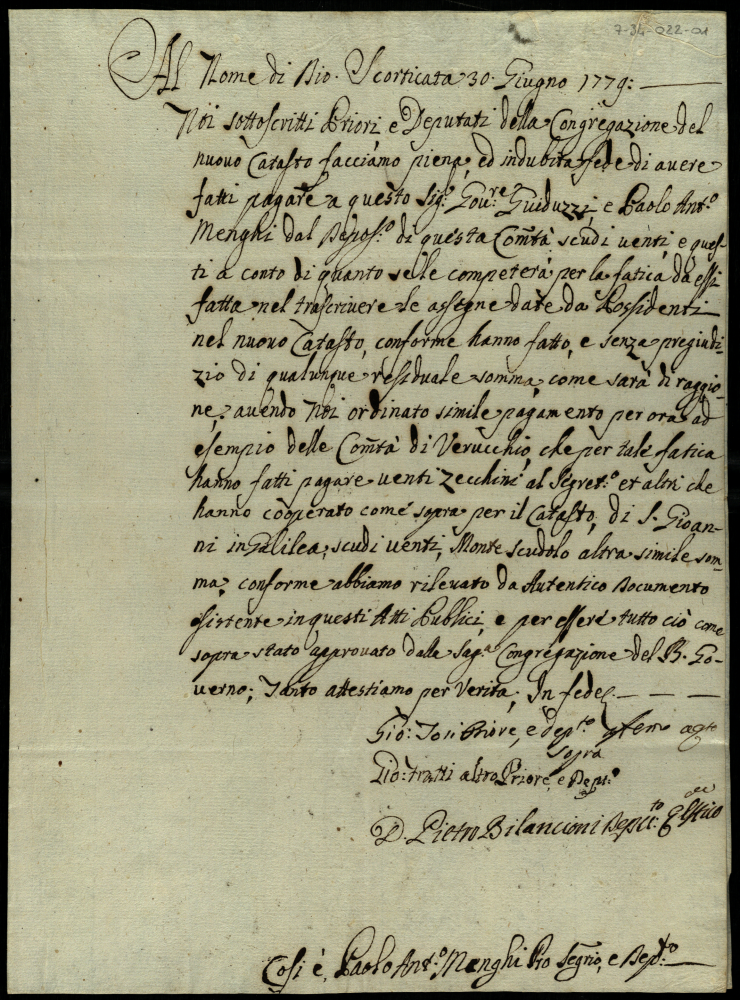 7-34-022-01
Al Nome di Dio. Scorticata 30. Giugno 1779:
Noi sottoscritti Priori e Deputati della Congregazione del
nuovo Catasto facciamo piena, ed indubita fede di avere
fatti pagare a questo Sig.r Gov.re Guiduzzi, e Paolo Ant.o
Menghi dal Depos.o di questa Com̃tà scudi venti, e ques-
ti a conto di quanto se le competerà per la fatica da essi
fatta nel trascrivere le assegne date da Possidenti
nel nuovo Catasto, conforme hanno fatto, e senza pregiudi-
zio di qualunque residuale somma, come sarà di raggio-
ne, avendo Noi ordinato simile pagamento per ora ad
esempio delle Com̃tà di Verucchio, che per tale fatica
hanno fatti pagare venti zecchini al Segret.o et altri che
hanno cooperato come sopra per il Catasto, di S. Gioan-
ni in Galilea, scudi venti, Monte Scudolo altra simile som-
ma, conforme abbiamo rilevato da Autentico Documento
esistente in questi Atti Publici, e per essere tutto ciò come
sopra stato approvato dalla Sag.a Congregazione del B. Go-
verno; Tanto attestiamo per Verità, In fede.
Gio: Tosi Priore, e dep.to
sopra
Gio: tratti altro Priore, e Dep.to
D. Pietro Bilancioni Dep.to
Così è, Paolo Ant.o Menghi Pro Segrio, e Dep.to